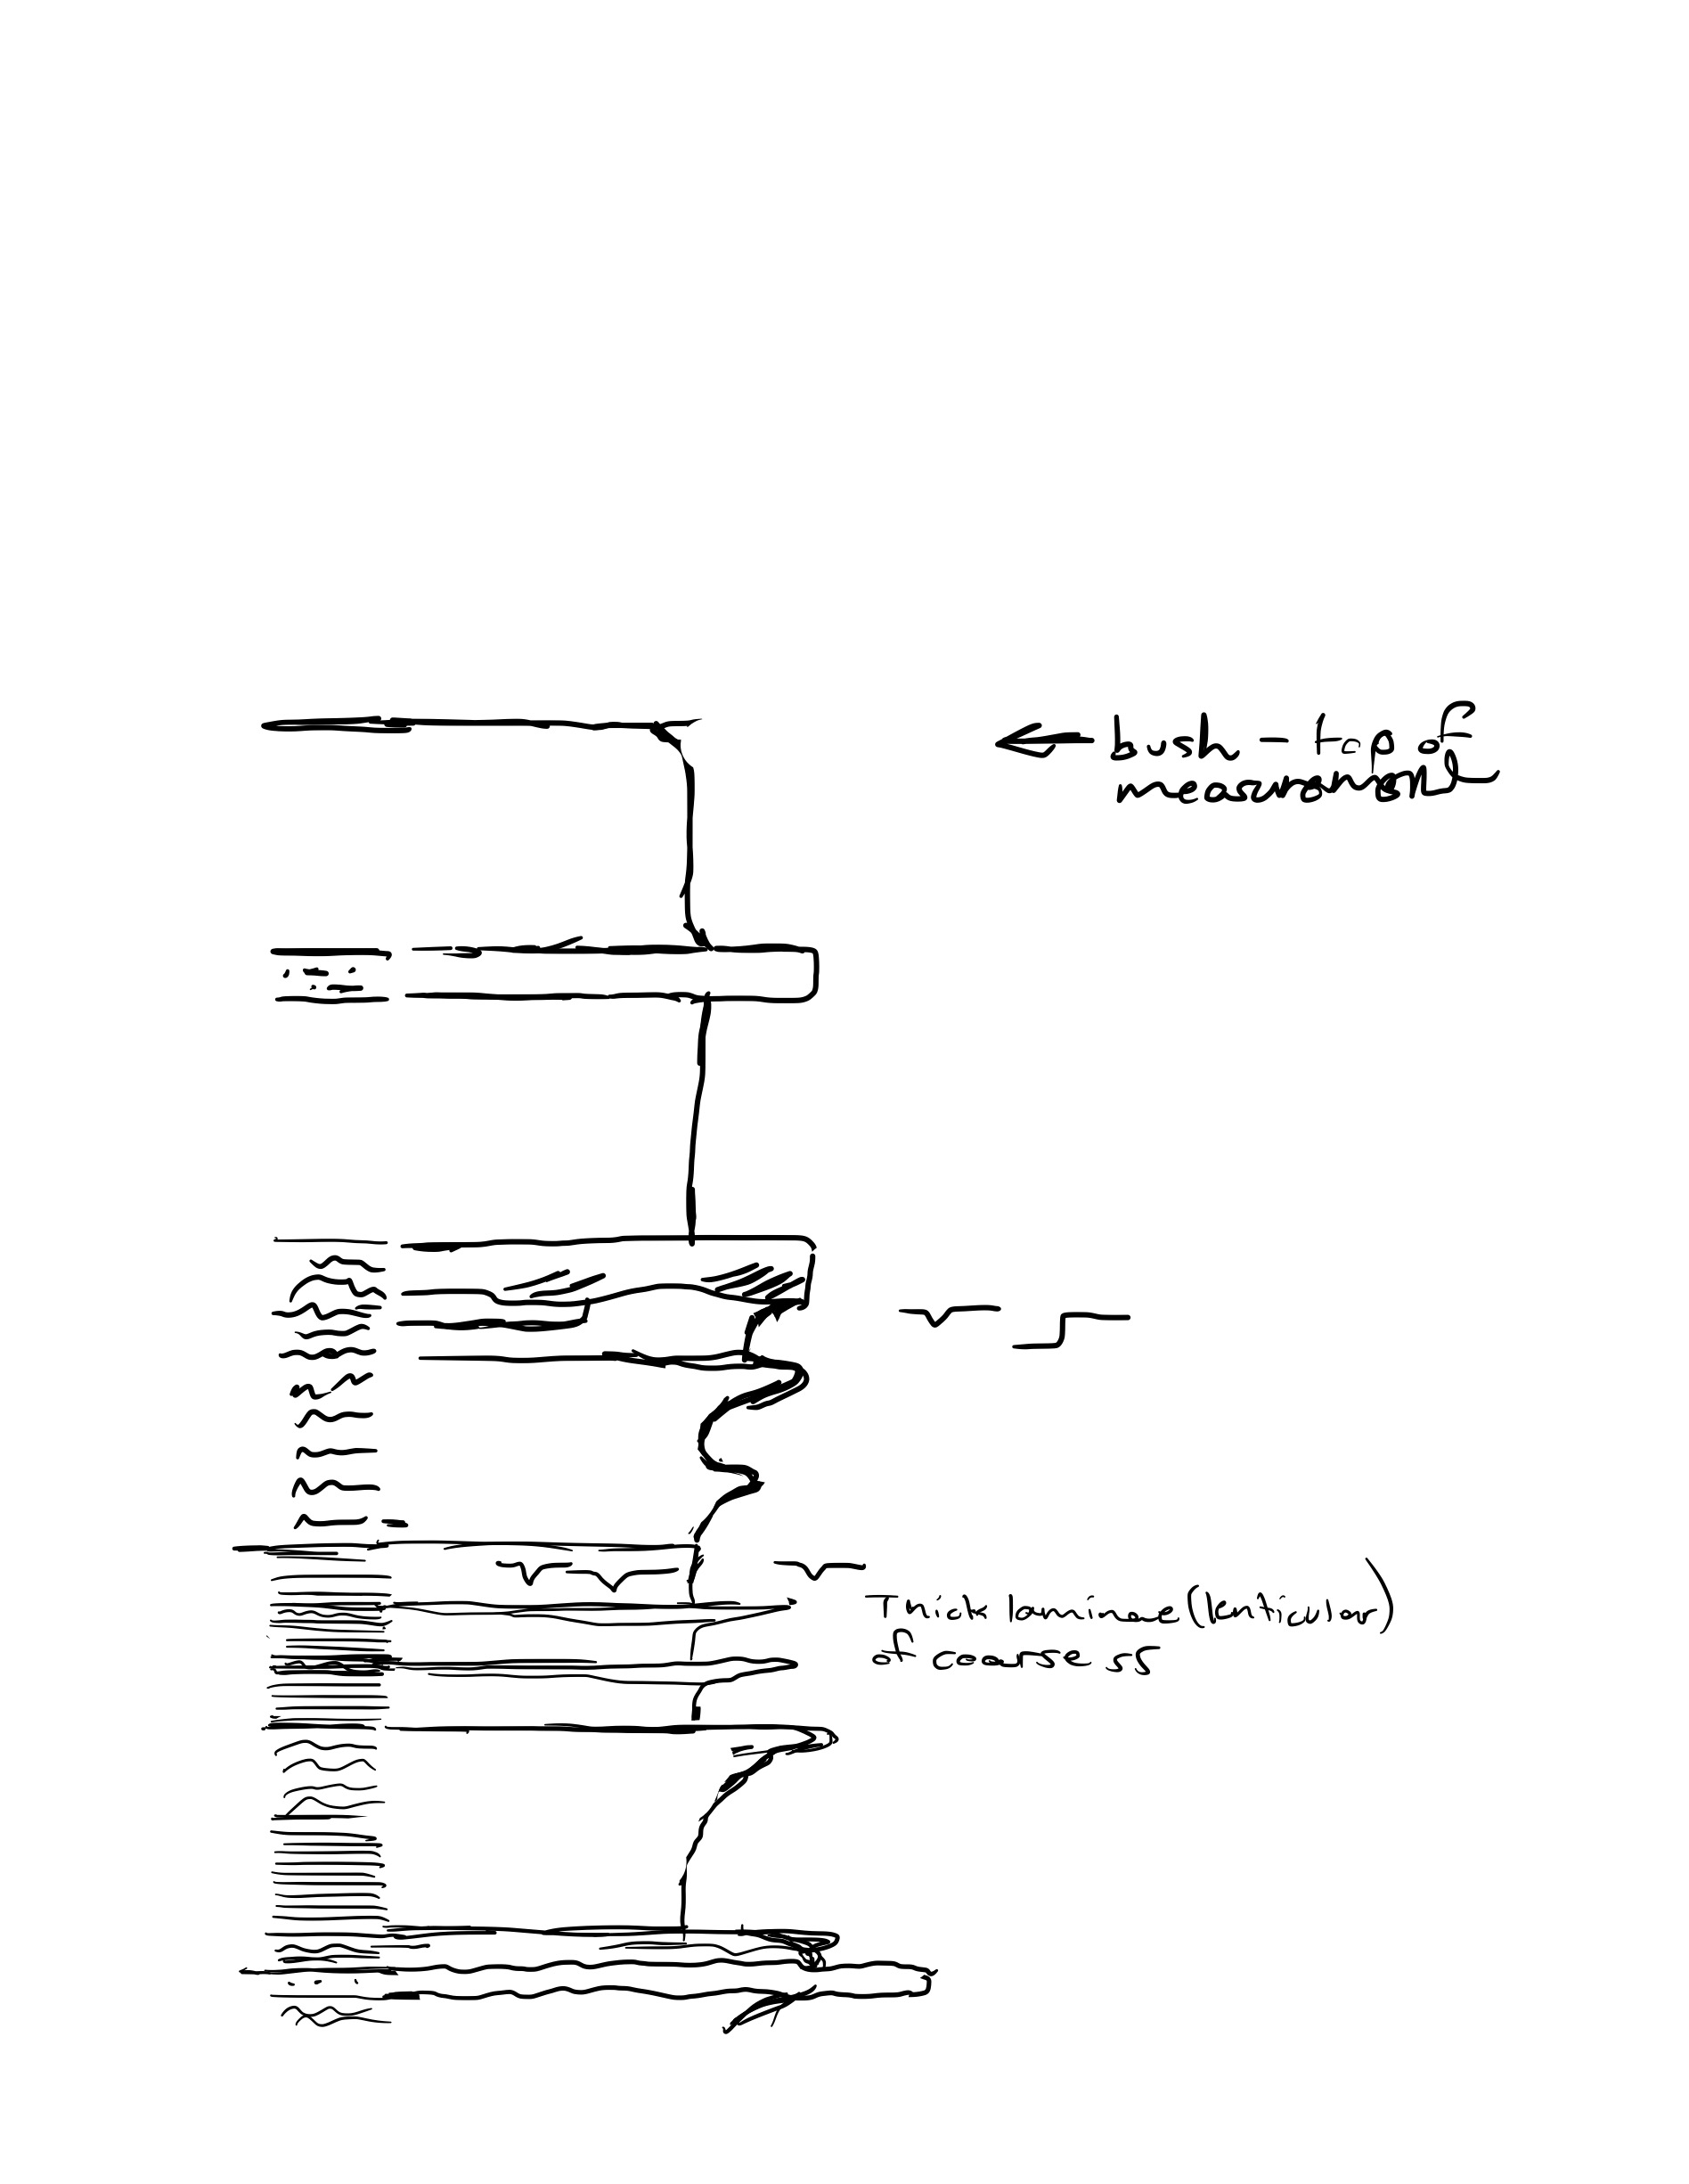 bush - top of
measurement
Thick laminae (lenticular)
of coarse ss